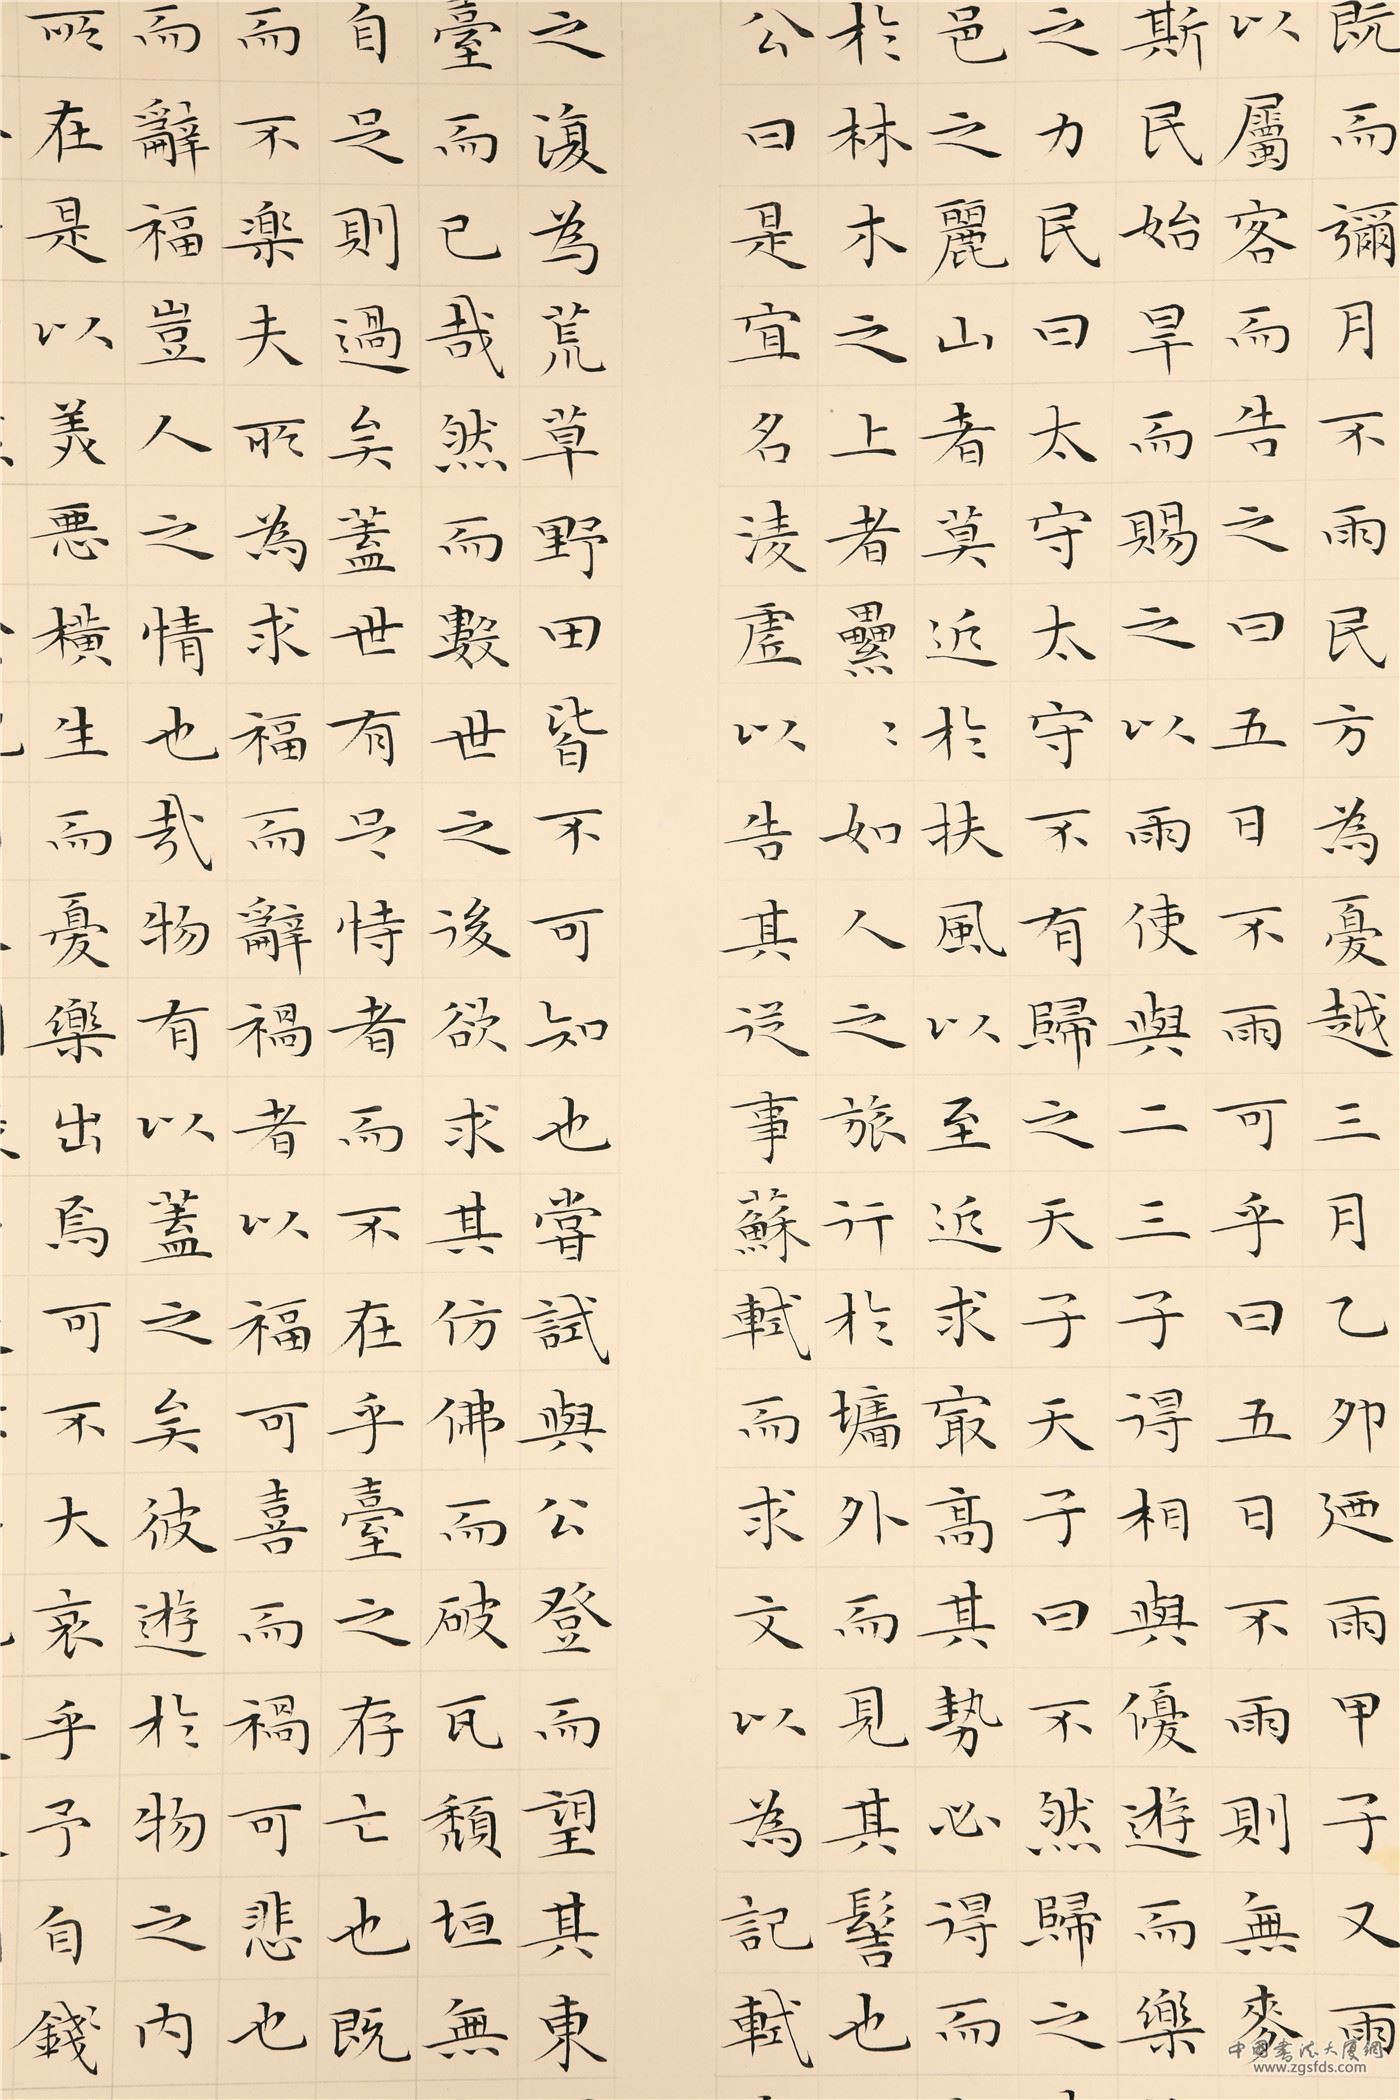 既而彌月不雨民方為憂越三月乙卯廼雨甲子又雨
以屬客而告之曰五日不雨可乎曰五日不雨則無麥
斯民始旱而賜之以雨使與二三子得相與優遊而樂
之力民曰太守太守不有歸之天子天子曰不然歸之
邑之麗山者莫近於扶風以至近求冣高其勢必得而
於林木之上者纍〻如人之旅行於墉外而見其髻也
公曰是宜名淩虛以告其從事蘇軾而求文以為記軾
之復為荒草野田皆不可知也嘗試與公登而望其東
臺而已哉然而數世之後欲求其仿佛而破瓦頹垣無
自足則過矣蓋世有足恃者而不在乎臺之存亡也既
而不楽夫所為求福而辭禍者以福可喜而禍可悲也
而辭福豈人之情也哉物有以蓋之矣彼遊於物之內
所在是以美悪橫生而憂樂出焉可不大哀乎予自錢
中國書法大廈網
www.zgsfds.com